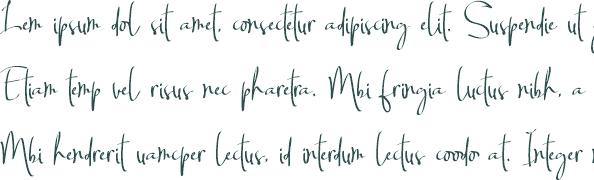 Lem ipsum dol sit amet, consectetur adipiscing elit. Suspendie ut
Etiam temp vel risus nec pharetra. Mbi fringia luctus nibh, a
Mbi hendrerit uamcper lectus, id interdum lectus coodo at. Integer